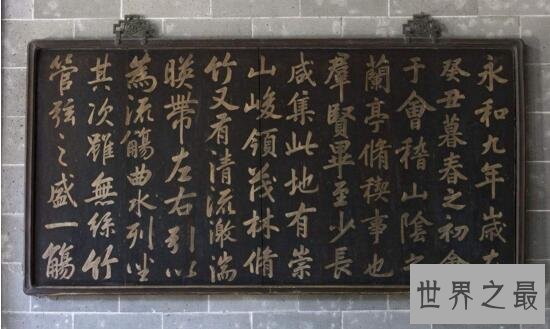 永和九年歲在
癸丑暮春之初會
于會稽山陰之
蘭亭脩禊事也
羣賢畢至少長
咸集此地有崇
山峻領茂林脩
竹又有清流激湍
暎帶左右引以
為流觴曲水列坐
其次雖無絲竹
管弦之盛一觴
世界之最